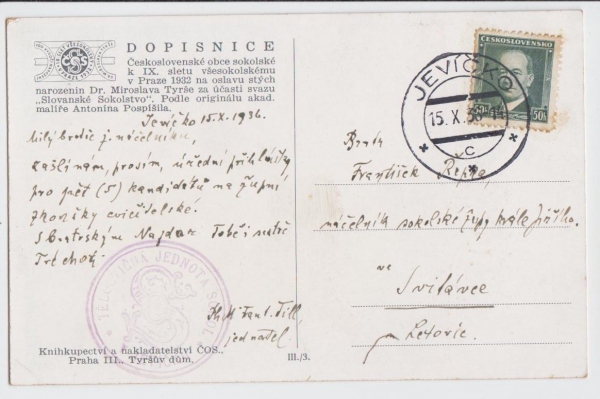 DOPISNICE
Československé obce sokolské
k IX. sletu všesokolskému
v Praze 1932 na oslavu stých
narozenin Dr. Miroslava Tyrše za účasti svazu
„Slovanské Sokolstvo“. Podle originálu akad.
malíře Antonína Pospíšila.
Jevíčko 15.X.1936.
Milý bratře náčelníku,
zašli nám, prosím, úřední přihlášky
pro pět (5) kandidátů na župní
zkoušky cvičitelské.
S bratrským Nazdar Tobě i sestře
TĚLOCVIČNÁ JEDNOTA SOKOL
jednatel.
Knihkupectví a nakladatelství ČOS.,
Praha III., Tyršův dům.
III./3.
ČESKOSLOVENSKO
50h 50h
JEVÍČKO
15.X.36
c
Bratr
František
náčelník sokolské župy krále Jiřího.
ve
Svitávce
Letovic.